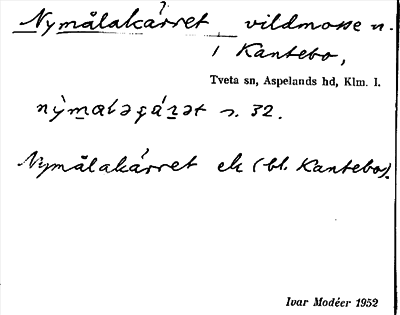 Nymålakärret, vildmosse n.
i Kantebo,
Tveta sn, Aspelands hd, Klm. l.
s. 32.
Nymålakärret ek (bl. Kantebo).
Ivar Modéer 1952